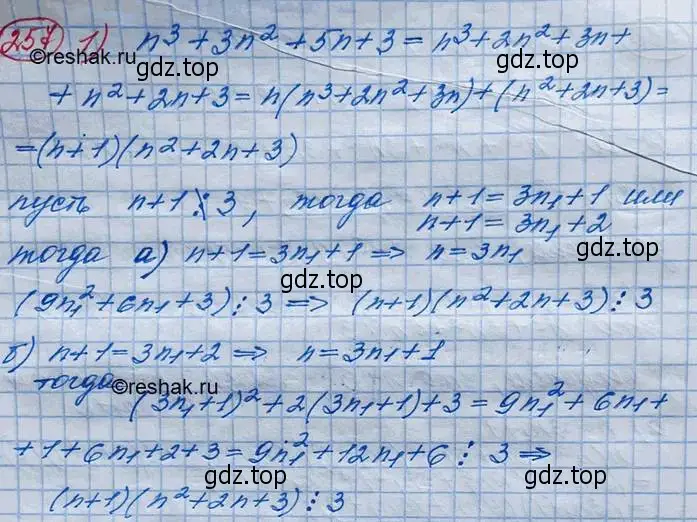 257 1) n³ + 3n² + 5n + 3 = n³ + 2n² + 3n +
©reshak.ru
гдз.top гдз.top
+ n² + 2n + 3 = n(n³ + 2n² + 3n) + (n² + 2n + 3) =
= (n + 1)(n² + 2n + 3)
гдз.top гдз.top
пусть n+1 ⋮̸ 3, тогда n+1 = 3n₁ + 1 или
n+1 = 3n₁ + 2
тогда а) n+1 = 3n₁ + 1 ⇒ n = 3n₁
гдз.top гдз.top
(9n₁² + 6n₁ + 3) ⋮ 3 ⇒ (n+1)(n² + 2n + 3) ⋮ 3
б) n+1 = 3n₁ + 2 ⇒ n = 3n₁ + 1
тогда ©reshak.ru гдз.top
(3n₁ + 1)² + 2(3n₁ + 1) + 3 = 9n₁² + 6n₁ +
+ 1 + 6n₁ + 2 + 3 = 9n₁² + 12n₁ + 6 ⋮ 3 ⇒
гдз.top гдз.top
(n+1)(n² + 2n + 3) ⋮ 3